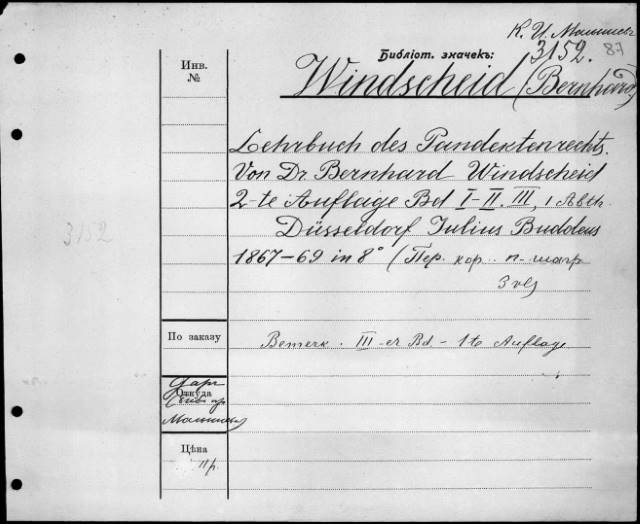 К. И. Малышев
Библіот. значекъ: 3152. 87
Windscheid (Bernhard)
Инв.
№
Lehrbuch des Pandektenrechts.
Von Dr Bernhard Windscheid
2-te Auflage Bd I-II. III, 1 Abth.
3152
Düsseldorf Julius Buddeus
1867-69 in 8° (Пер. кор.
По заказу
Bemerk. III-er Bd - 1te Auflage
Откуда
Цѣна